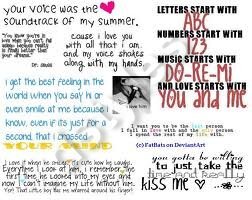 your voice was the
soundtrack of my summer.
"You know you're in
love when you can't fall
asleep because reality
is finally better than
your dreams."
Dr. Seuss
cause i love you
with all that i am
and my voice shakes
along with my hands.
LETTERS START WITH
ABC
NUMBERS START WITH
123
MUSIC STARTS WITH
DO-RE-Mi
AND LOVE STARTS WITH
YOU and ME
I get the best feeling in the
world when you say hi or
even smile at me because i
know, even if its just for a
second, that i crossed
YOUR MIND
i love him
I want you to be the best person
I fall in love with and the only person I
spend the rest of my life with.
(c)FatBats on DeviantArt
I love it when he smiles it's cute how he laughs.
Everything I look at him, I remember the
first time he looked into my eyes and
now I can't imagine my life without him.
Yep! That little boy has me wrapped around his finger!
you gotta be willing
to just take the
time and really
kiss me